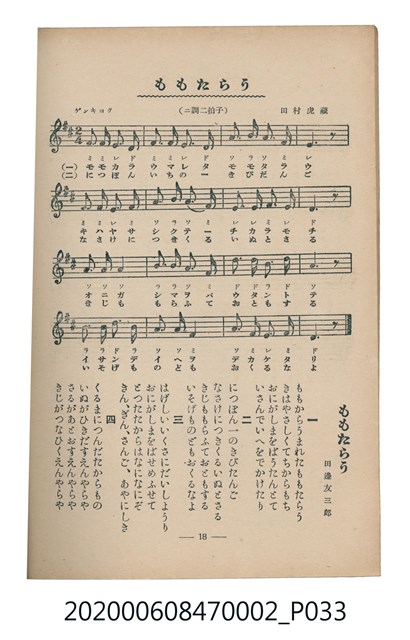 ももたらう
ゲンキヨク
(ニ調二拍子)
田村虎藏
(一) モモカラ ウマレタ モモタラウ
(二) につぽん いちの きびだんご
キハヤサシクテ チカラモチ
なさけにつきくる いぬとさる
オニガシマヲバ ウタントテ
きじももらふて おともする
イサンデイヘヲ デカケタリ
いそげものども おくるなよ
ももたらう
田邊友三郎
一
ももからうまれたももたらう
きはやさしくてちからもち
おにがしまをばうたんとて
いさんでいへをでかけたり
二
につぽん一のきびだんご
なさけにつきくるいぬとさる
きじももらふておともする
いそげものどもおくるなよ
三
はげしいいくさにだいしようり
おにがしまをばせめふせて
とつたたからはなになにぞ
きん、ぎん、さんご、あやにしき
四
くるまにつんだたからもの
いぬがひきだすえんやらや
さるがあとおすえんやらや
きじがつなひくえんやらや
— 18 —
202000608470002_P033